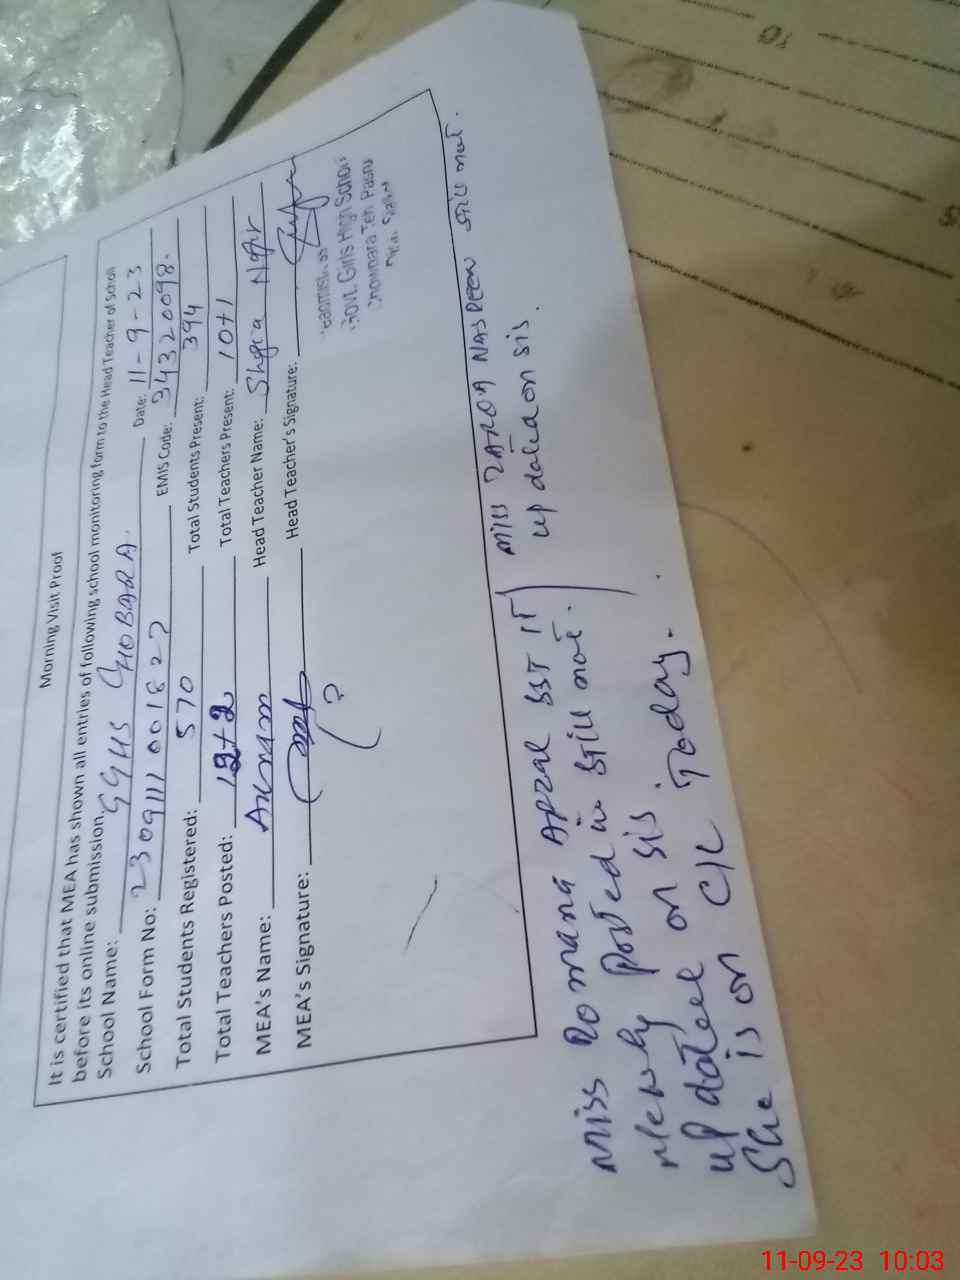 Morning Visit Proof
It is certified that MEA has shown all entries of following school monitoring form to the Head Teacher of School
before its online submission.
School Name: GGHS CHOBARA Date: 11-9-23
School Form No: EMIS Code: 34320098.
Total Students Registered: 570 Total Students Present: 394
Total Teachers Posted: 12+2 Total Teachers Present: 10+1
MEA's Name: Head Teacher Name:
MEA's Signature: Head Teacher's Signature:
Govt. Girls High School
Chowbara Teh Pasrur
Miss Romana Afzal SST IT
newly posted in still not.
up dated on sis.
She is on C/L Today.
Miss NASREEN still not.
up dated on sis.
11-09-23 10:03